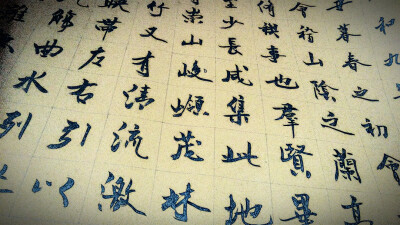 和九
暮春之初會
會稽山陰之蘭亭
禊事也羣賢畢
至少長咸集此地
崇山峻嶺茂林
竹又有清流激
映帶左右引以
觴曲水列